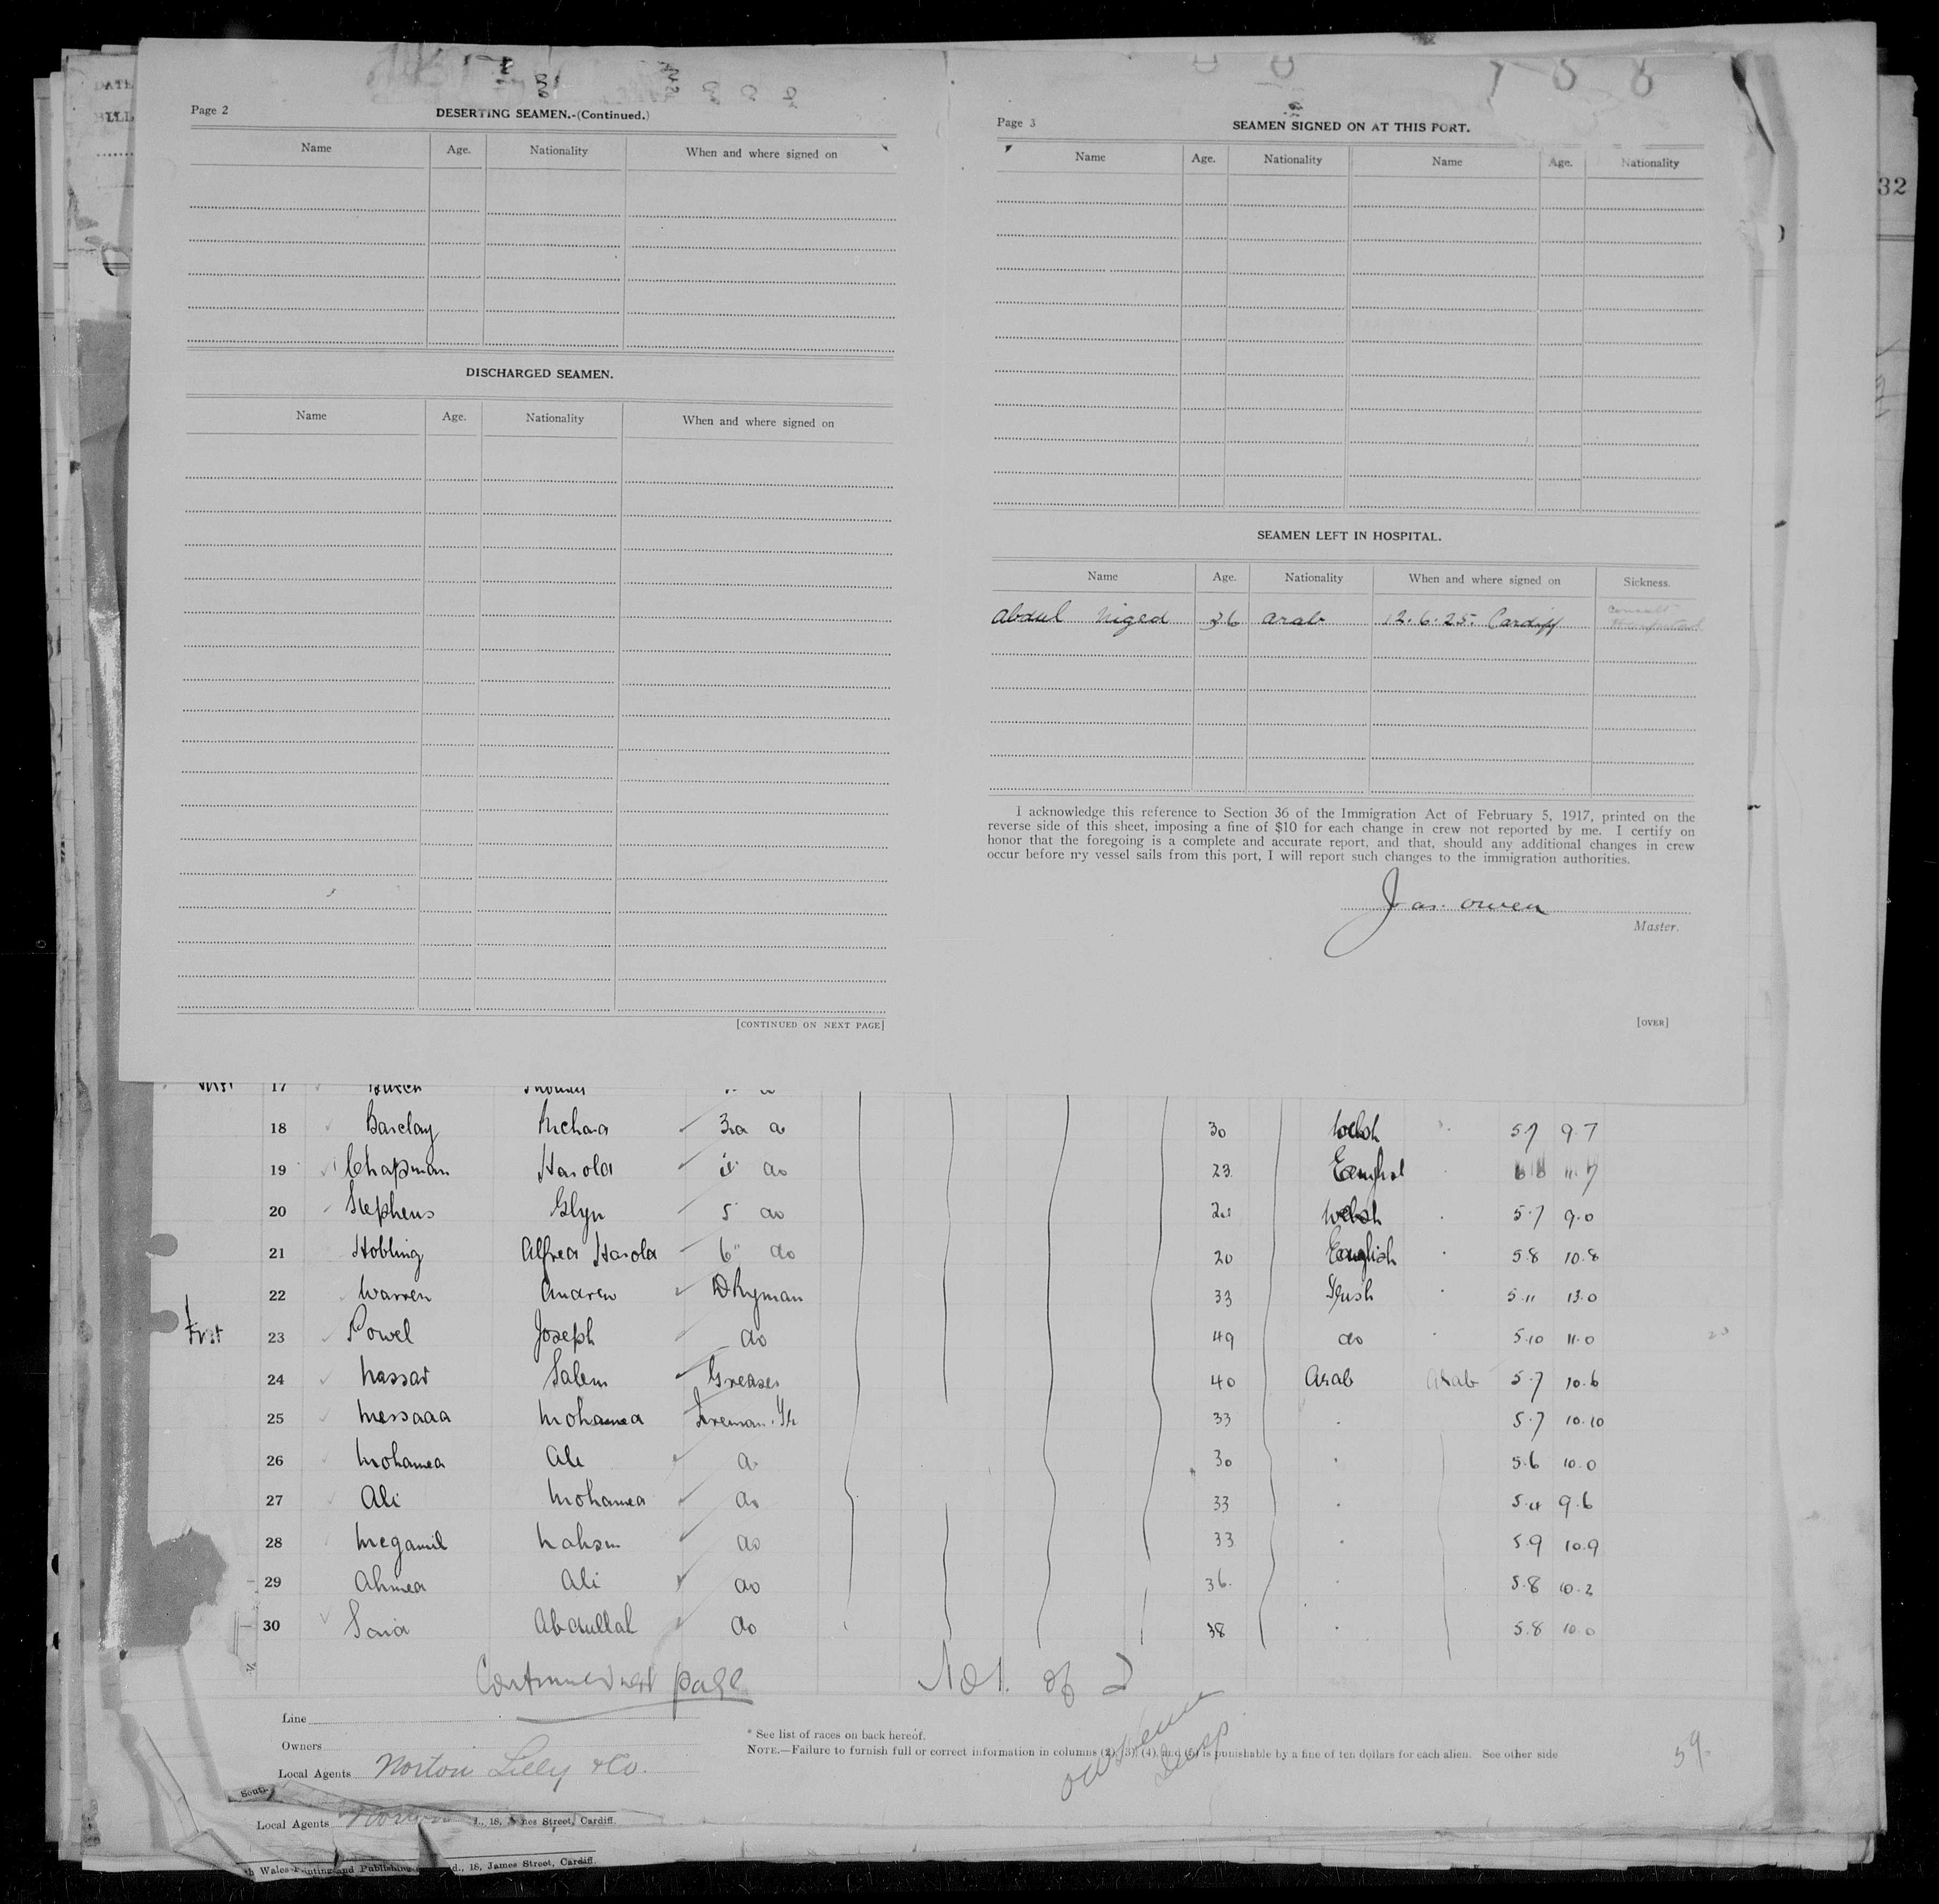 Page 2
DESERTING SEAMEN.-(Continued.)
Name Age. Nationality When and where signed on
DISCHARGED SEAMEN.
Name Age. Nationality When and where signed on
[CONTINUED ON NEXT PAGE]
Page 3
SEAMEN SIGNED ON AT THIS PORT.
Name Age. Nationality Name Age. Nationality
SEAMEN LEFT IN HOSPITAL.
Name Age. Nationality When and where signed on Sickness.
Abdul Niged 36 Arab 12.6.25. Cardiff
I acknowledge this reference to Section 36 of the Immigration Act of February 5, 1917, printed on the
reverse side of this sheet, imposing a fine of $10 for each change in crew not reported by me. I certify on
honor that the foregoing is a complete and accurate report, and that, should any additional changes in crew
occur before my vessel sails from this port, I will report such changes to the immigration authorities.
Jas. Owen
Master.
[OVER]
32
17
18 Barclay Richard 3rd do 30 Welsh 5.7 9.7
19 Chapman Harold do 23 English 11.7
20 Stephens Glyn 5 do Welsh 5.7 9.0
21 Hobling Alfred Harold 6" do 20 English 5.8 10.8
22 Warren Andrew DKyman 33 Irish 5.11 13.0
23 Powel Joseph do 49 do 5.10 11.0
24 Nassar Salem Greaser 40 Arab Arab 5.7 10.6
25 Messada Mohamed Fireman 33 5.7 10.10
26 Mohamed Ali do 30 5.6 10.0
27 Ali Mohamed do 33 5.4 9.6
28 Megamil Nahsin do 33 5.9 10.9
29 Ahmed Ali do 36 5.8 10.2
30 Said Abdullah do 38 5.8 10.0
Continued next page No 1. of 2
Line
Owners
Local Agents Norton Lilly & Co.
* See list of races on back hereof.
NOTE.—Failure to furnish full or correct information in columns (2), (3), (4), and (5) is punishable by a fine of ten dollars for each alien. See other side
59.
Local Agents Norton 18, James Street, Cardiff.
Wales Printing and Publishing 18, James Street, Cardiff.